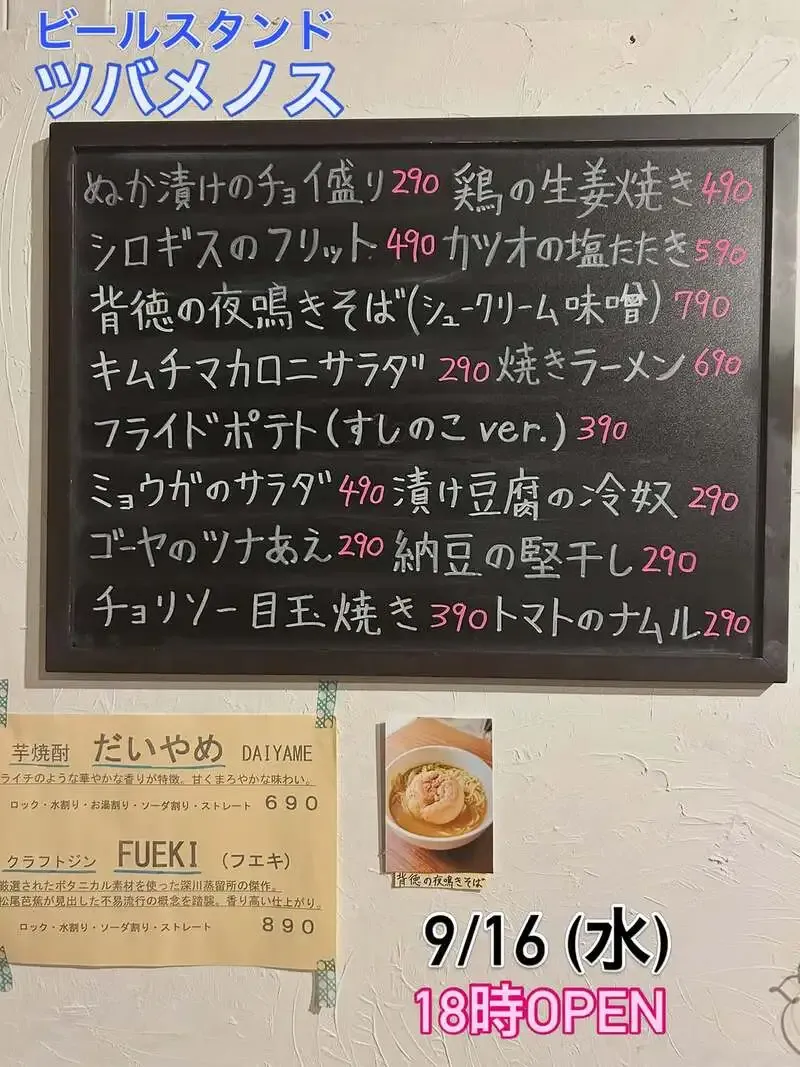 ビールスタンド
ツバメノス
ぬか漬けのチョイ盛り 290 鶏の生姜焼き 490
シロギスのフリット 490 カツオの塩たたき 590
背徳の夜鳴きそば(シュークリーム味噌) 790
キムチマカロニサラダ 290 焼きラーメン 690
フライドポテト(すしのこ ver.) 390
ミョウガのサラダ 490 漬け豆腐の冷奴 290
ゴーヤのツナあえ 290 納豆の堅干し 290
チョリソー目玉焼き 390 トマトのナムル 290
芋焼酎 だいやめ DAIYAME
ライチのような華やかな香りが特徴。甘くまろやかな味わい。
ロック・水割り・お湯割り・ソーダ割り・ストレート 690
クラフトジン FUEKI (フエキ)
厳選されたボタニカル素材を使った深川蒸留所の傑作。
松尾芭蕉が見出した不易流行の概念を踏襲。香り高い仕上がり。
ロック・水割り・ソーダ割り・ストレート 890
背徳の夜鳴きそば
9/16 (水)
18時OPEN